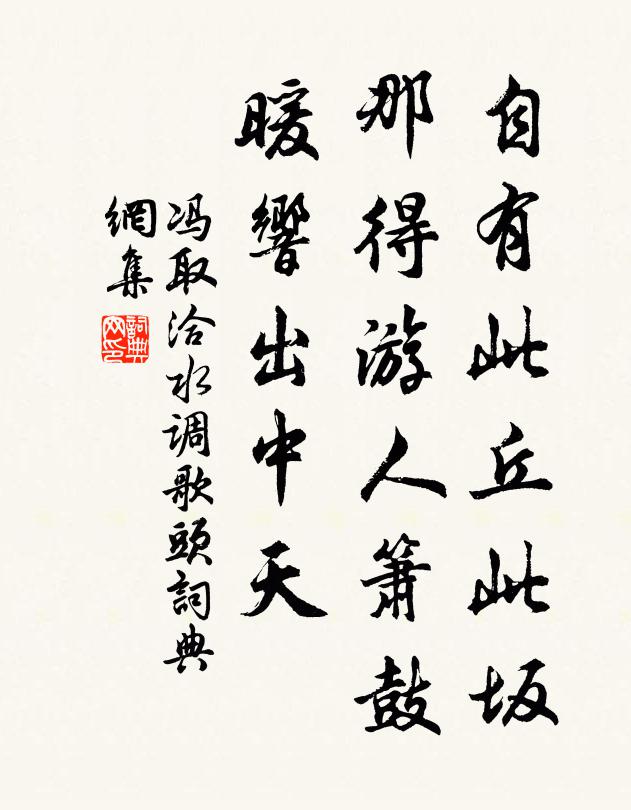 自有此丘此坂
那得游人箫鼓
暖響出中天
冯取洽水调歌頭詞典
網集
詞典網印